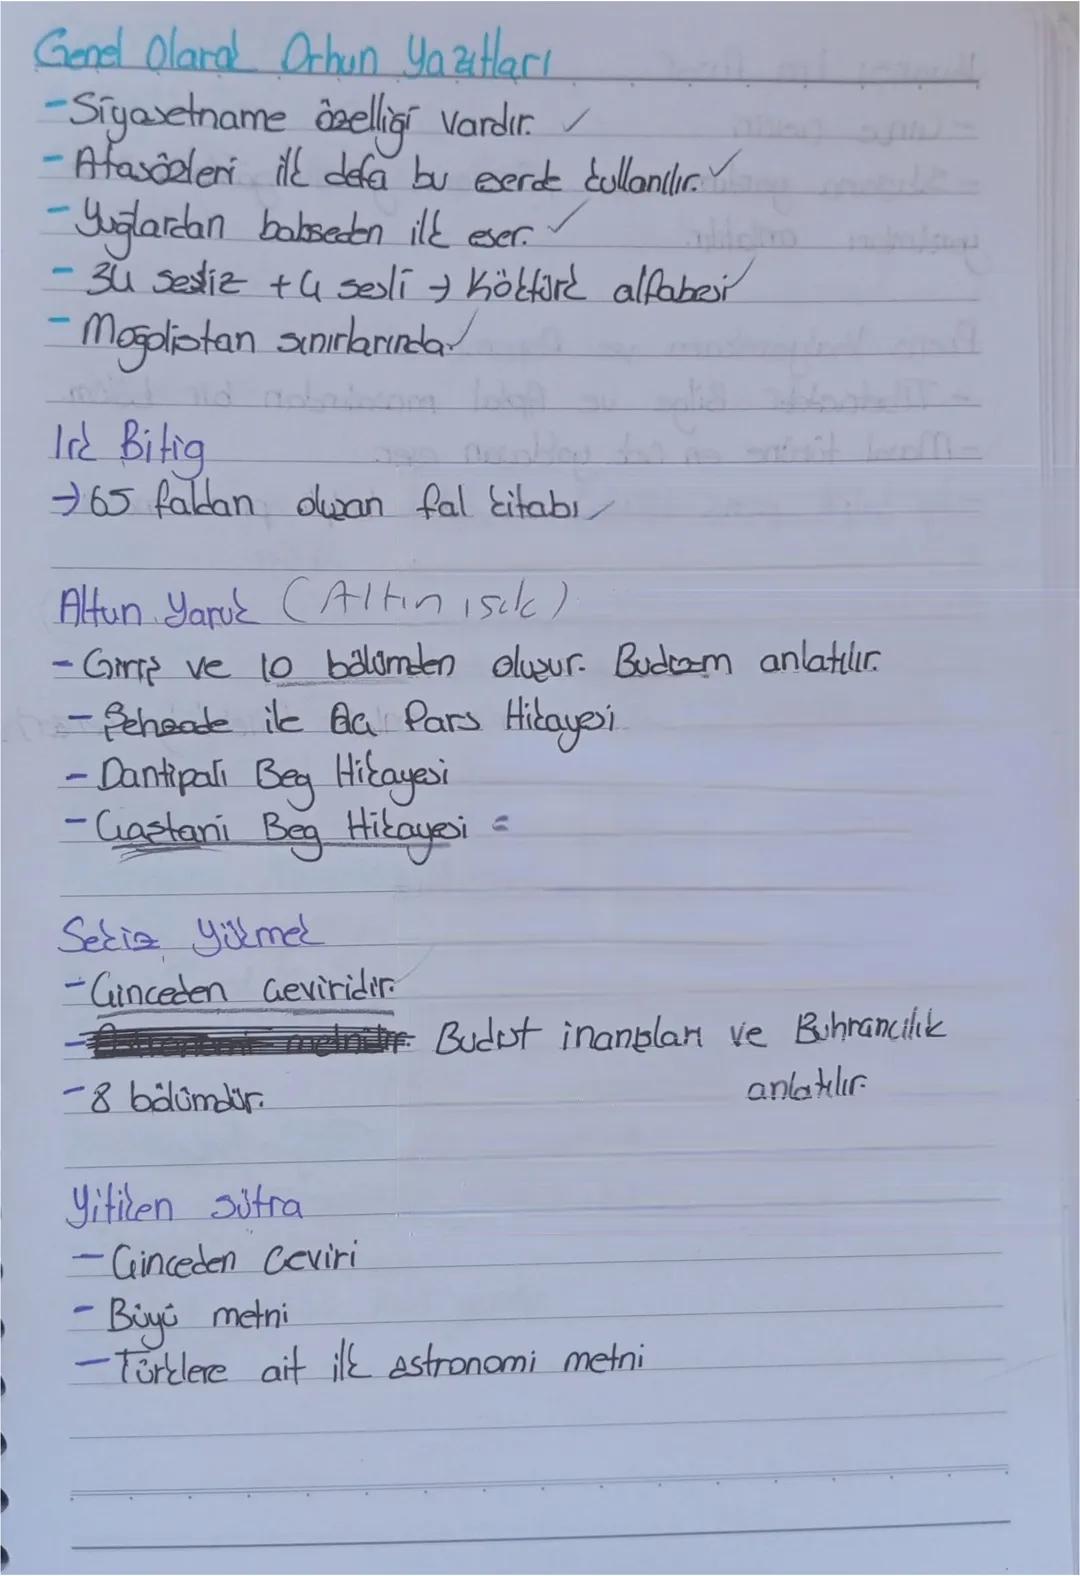 Genel Olarak Orhun Yazıtları
- Siyasetname özelliği vardır. ✓
- Atasözleri ilk defa bu eserde kullanılır. ✓
- Yuğlardan bahseden ilk eser. ✓
- 34 sessiz + 4 sesli → Köktürk alfabesi ✓
- Moğolistan sınırlarında. ✓
Irk Bitig
→ 65 faldan oluşan fal kitabı ✓
Altun Yaruk (Altın ışık)
- Giriş ve 10 bölümden oluşur. Budizm anlatılır.
- Şehzade ile Aç Pars Hikayesi
- Dantipali Beg Hikayesi
- Çaştani Beg Hikayesi =
Sekiz Yükmek
- Çinceden çeviridir.
- Budist inanışları ve Buhrancılık
anlatılır.
- 8 bölümdür.
Yitiken sütra
- Çinceden Çeviri
- Büyü metni
- Türklere ait ilk astronomi metni